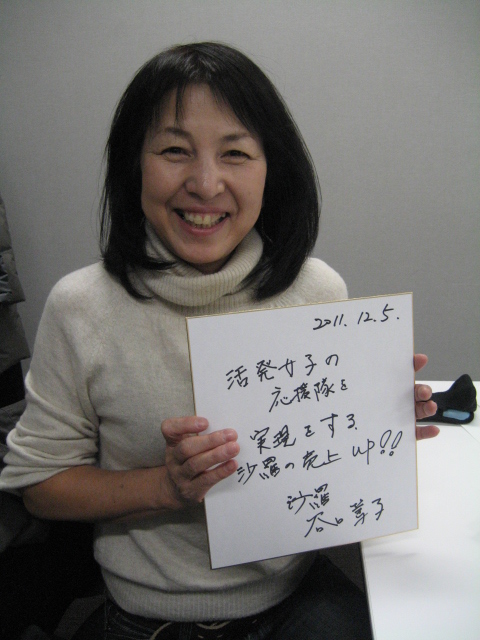 2011.12.5.
活発女子の
応援隊を
実現をする
沙羅の売上 up!!
沙羅
谷口 芽子